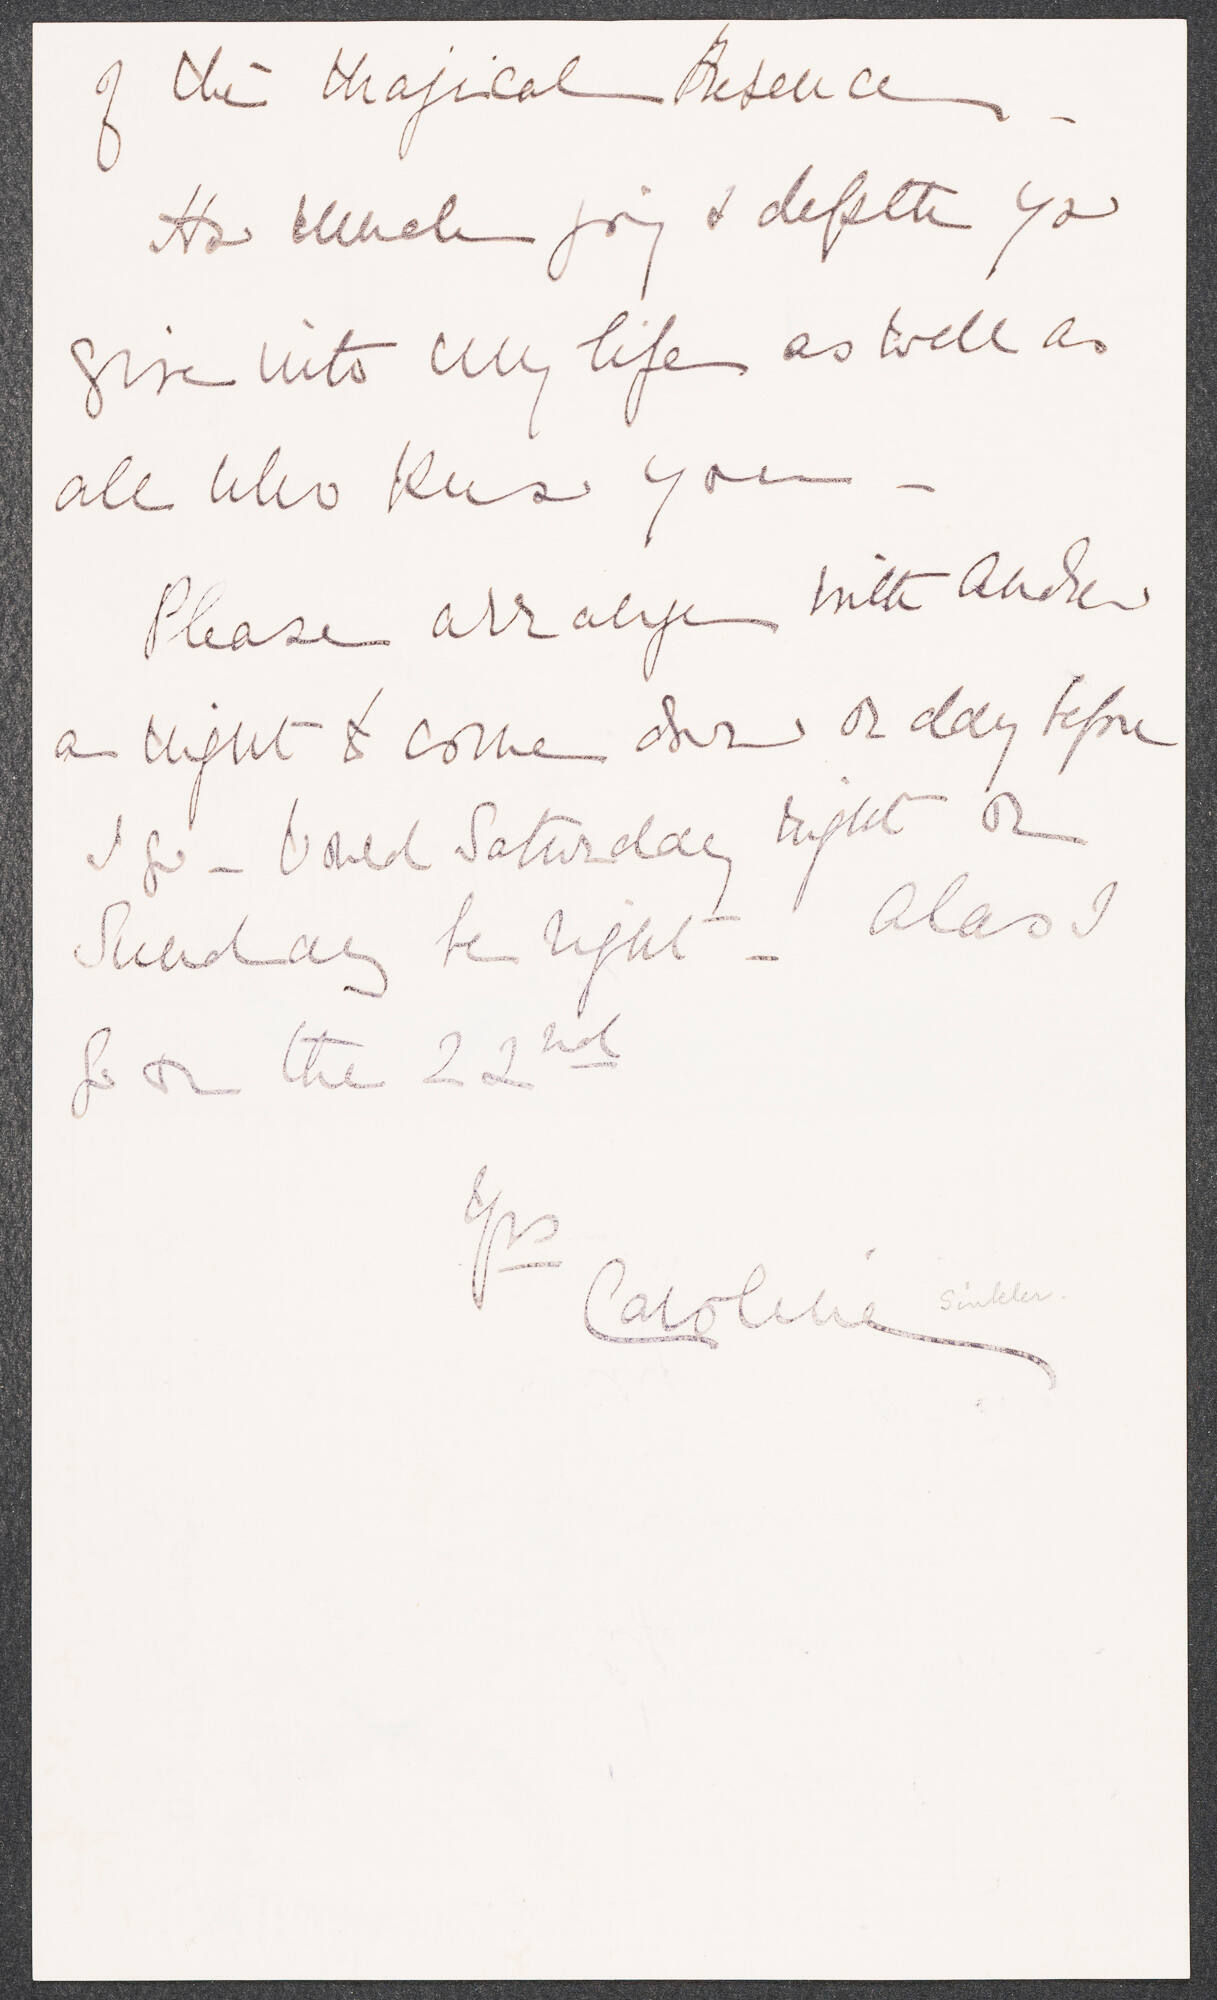 of the magical Presence –
How much joy & depth you
give into my life as well as
all who know you –
Please arrange with Andrew
a night & come down or day before
I go – Would Saturday night or
Sunday be right – Alas I
go on the 22nd
Yrs
Caroline Sinkler.